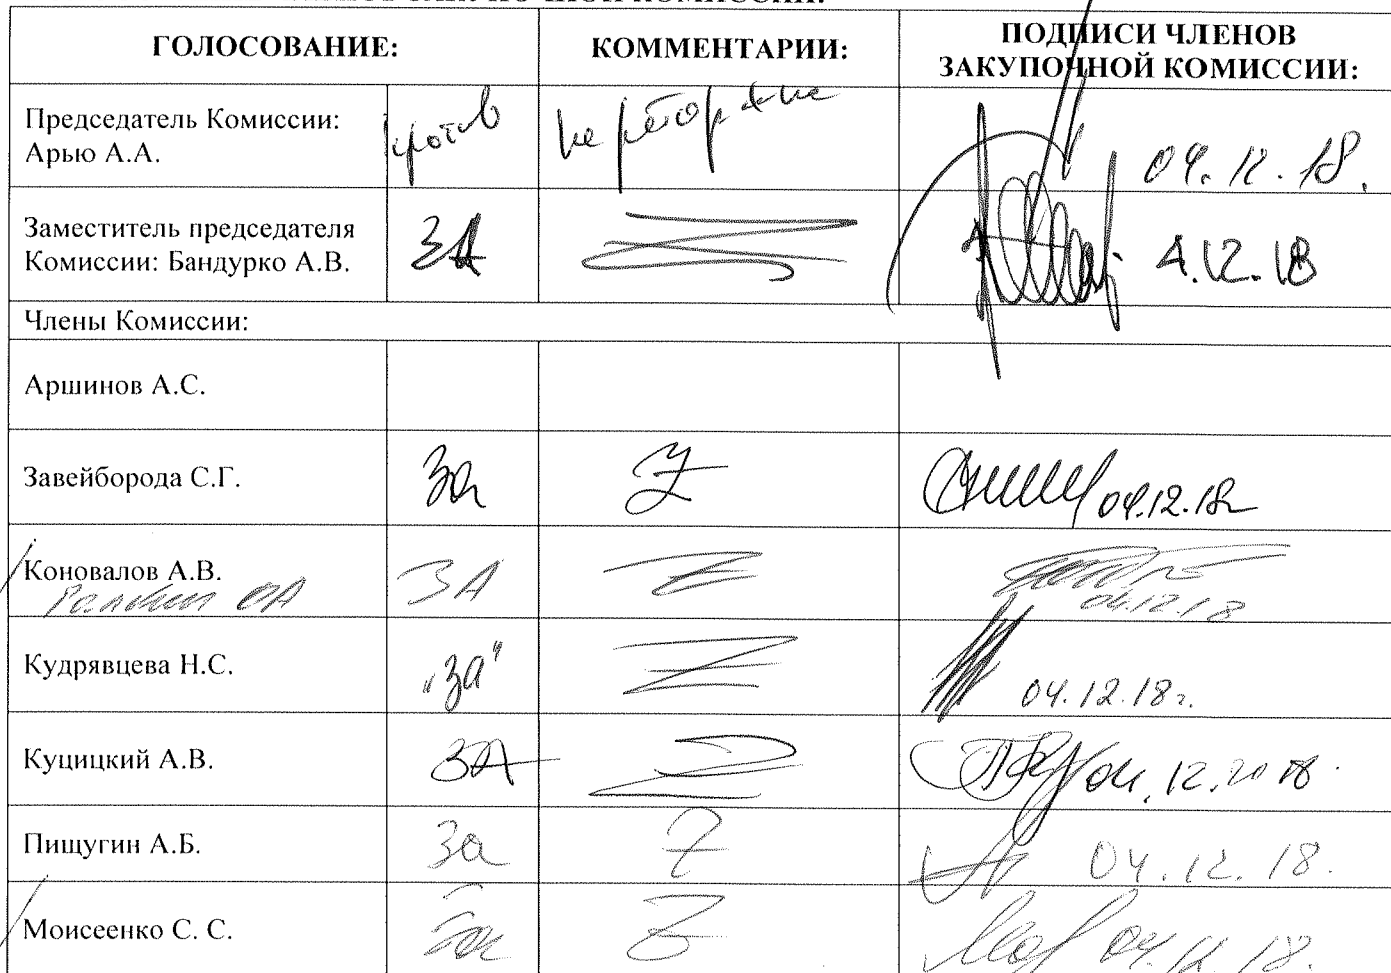 ГОЛОСОВАНИЕ: КОММЕНТАРИИ: ПОДПИСИ ЧЛЕНОВ
ЗАКУПОЧНОЙ КОМИССИИ:
Председатель Комиссии:
Арью А.А. против 04.12.18.
Заместитель председателя
Комиссии: Бандурко А.В. ЗА 4.12.18
Члены Комиссии:
Аршинов А.С.
Завейборода С.Г. За 04.12.18г
Коновалов А.В. ЗА
04.12.18
Кудрявцева Н.С. "за" 04.12.18г.
Куцицкий А.В. ЗА 04.12.2018.
Пищугин А.Б. За 04.12.18.
Моисеенко С. С. За 04.12.18.